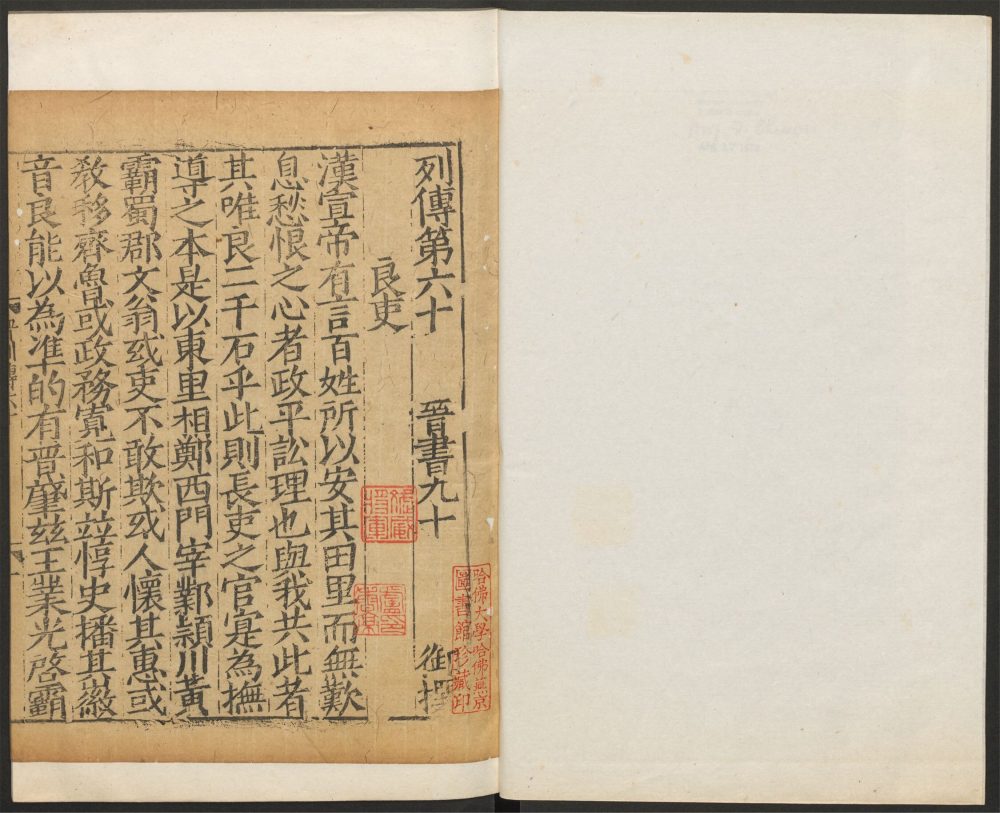 列傳第六十　晉書九十　御撰
良吏
漢宣帝有言百姓所以安其田里而無歎
息愁恨之心者政平訟理也與我共此者
其唯良二千石乎此則長吏之官寔為撫
導之本是以東里相鄭西門宰鄴潁川黃
霸蜀郡文翁或吏不敢欺或人懷其惠或
敎移齊魯或政務寬和斯竝惇史播其徽
音良能以為准的有晋肇兹王業光啓霸
哈佛大學哈佛燕京
圖書館珍藏印